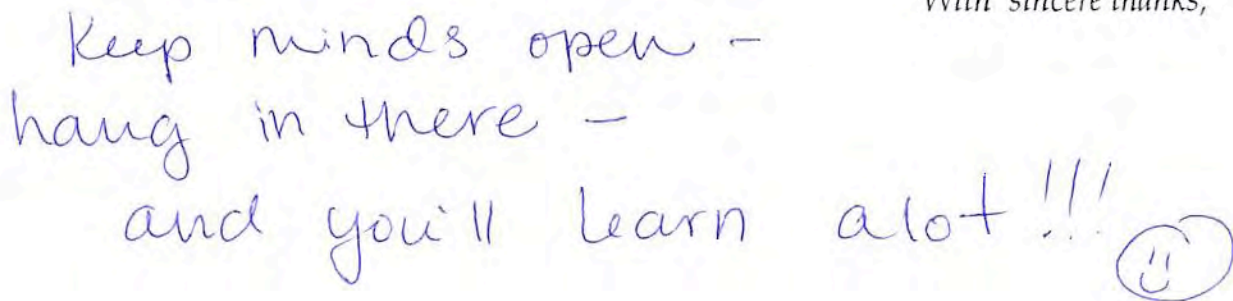 With sincere thanks,
Keep minds open -
hang in there -
and you'll learn alot!!!